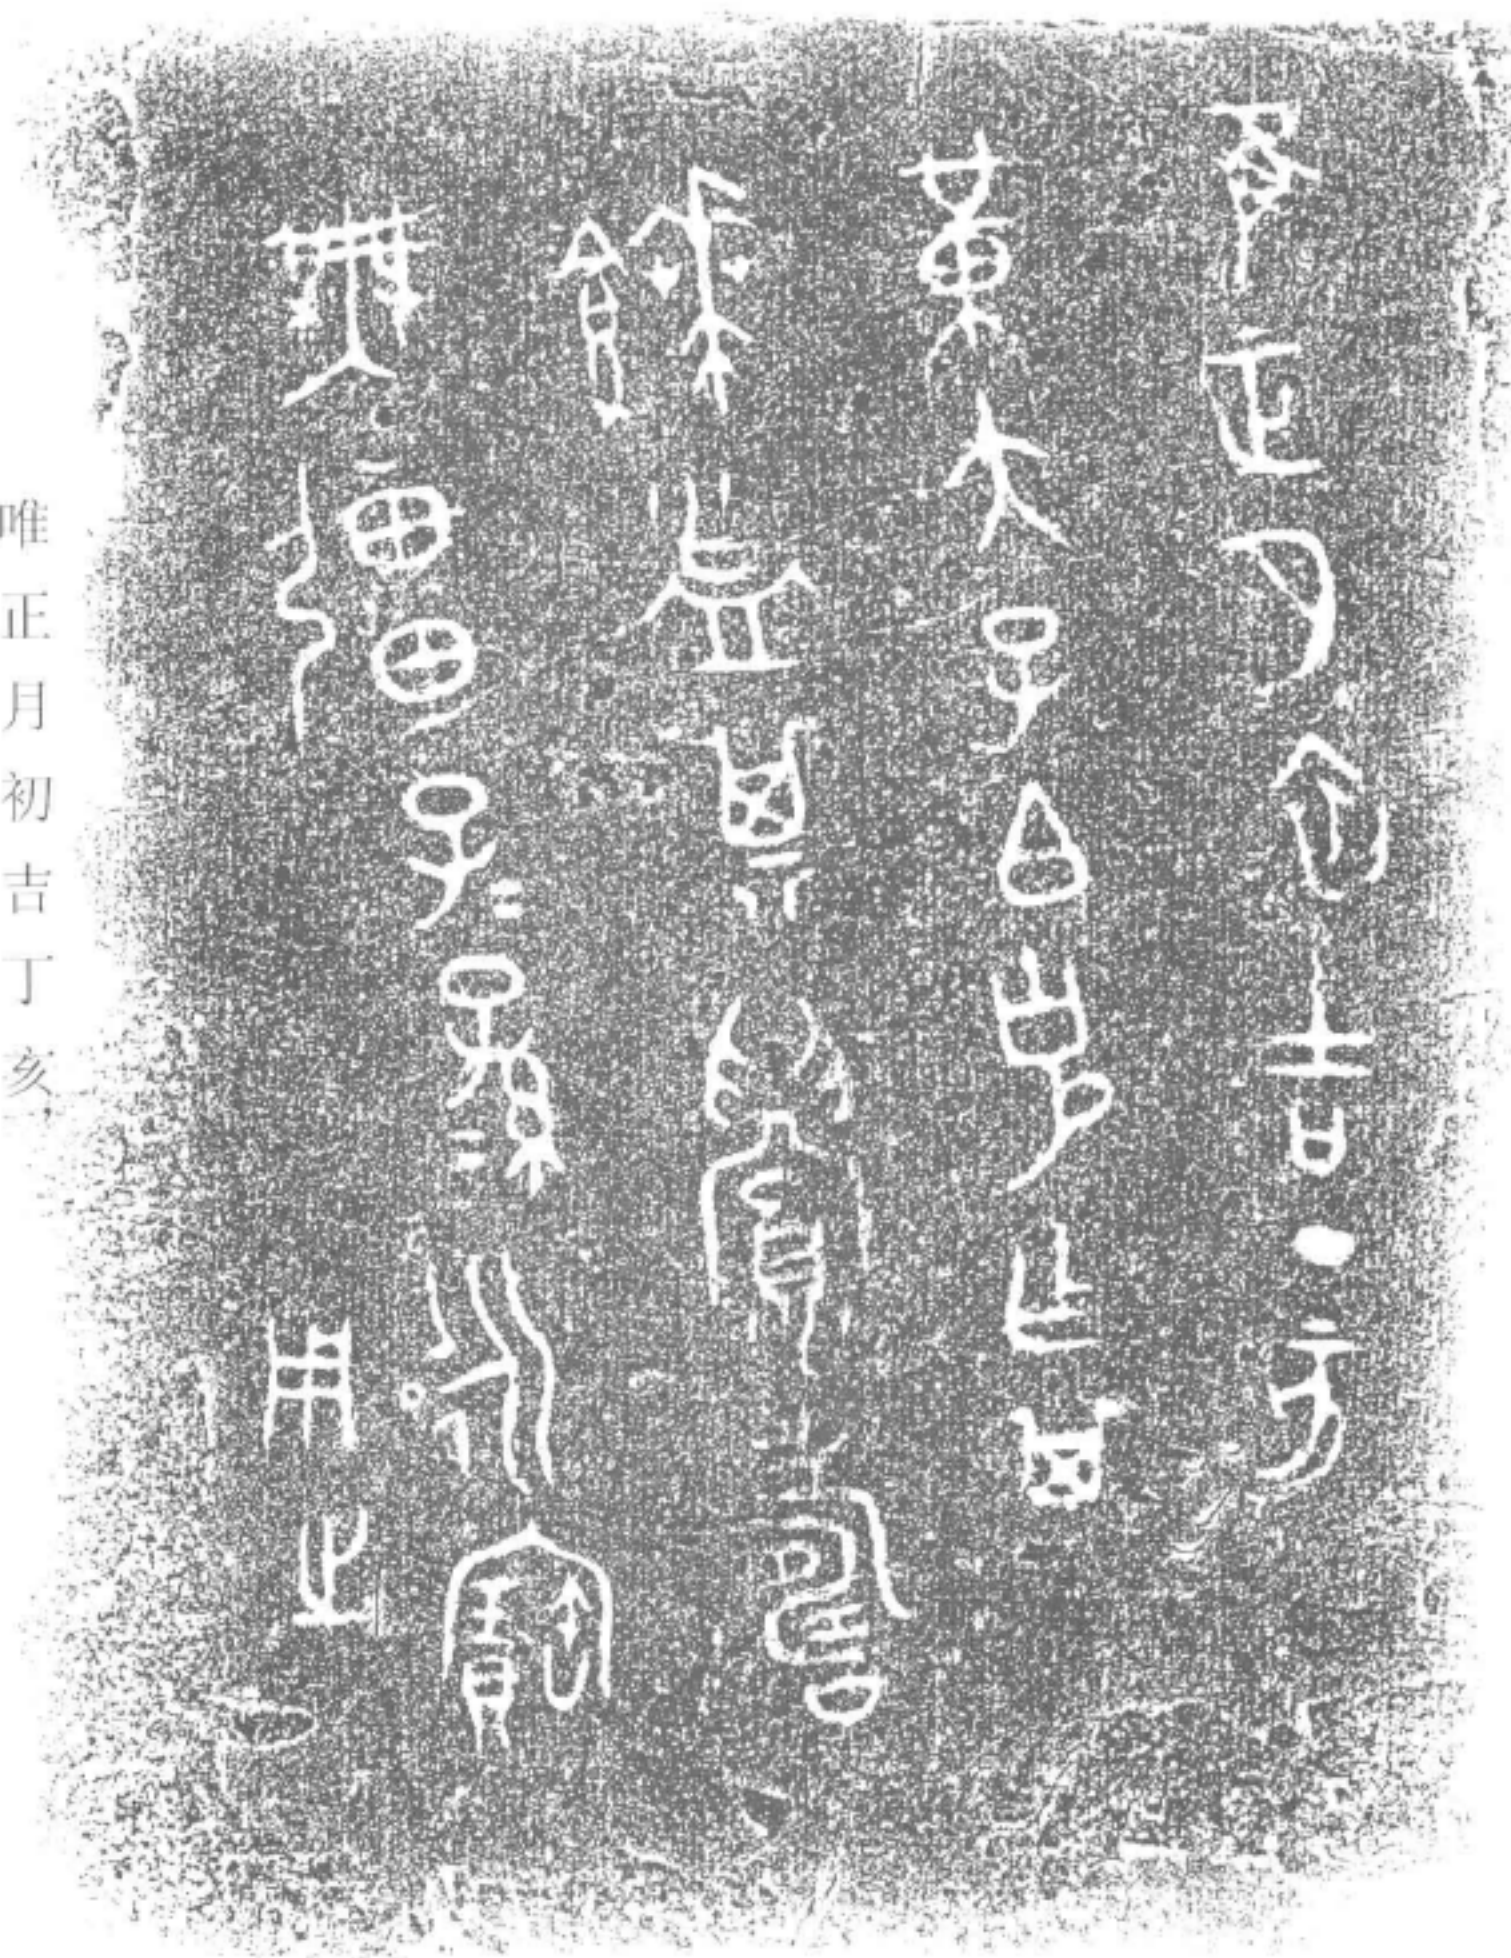 隹正月初吉丁亥
黃大子白克乍其
餴盆其眉壽
無疆子=孫=永寶
用之
唯正月初吉丁亥,